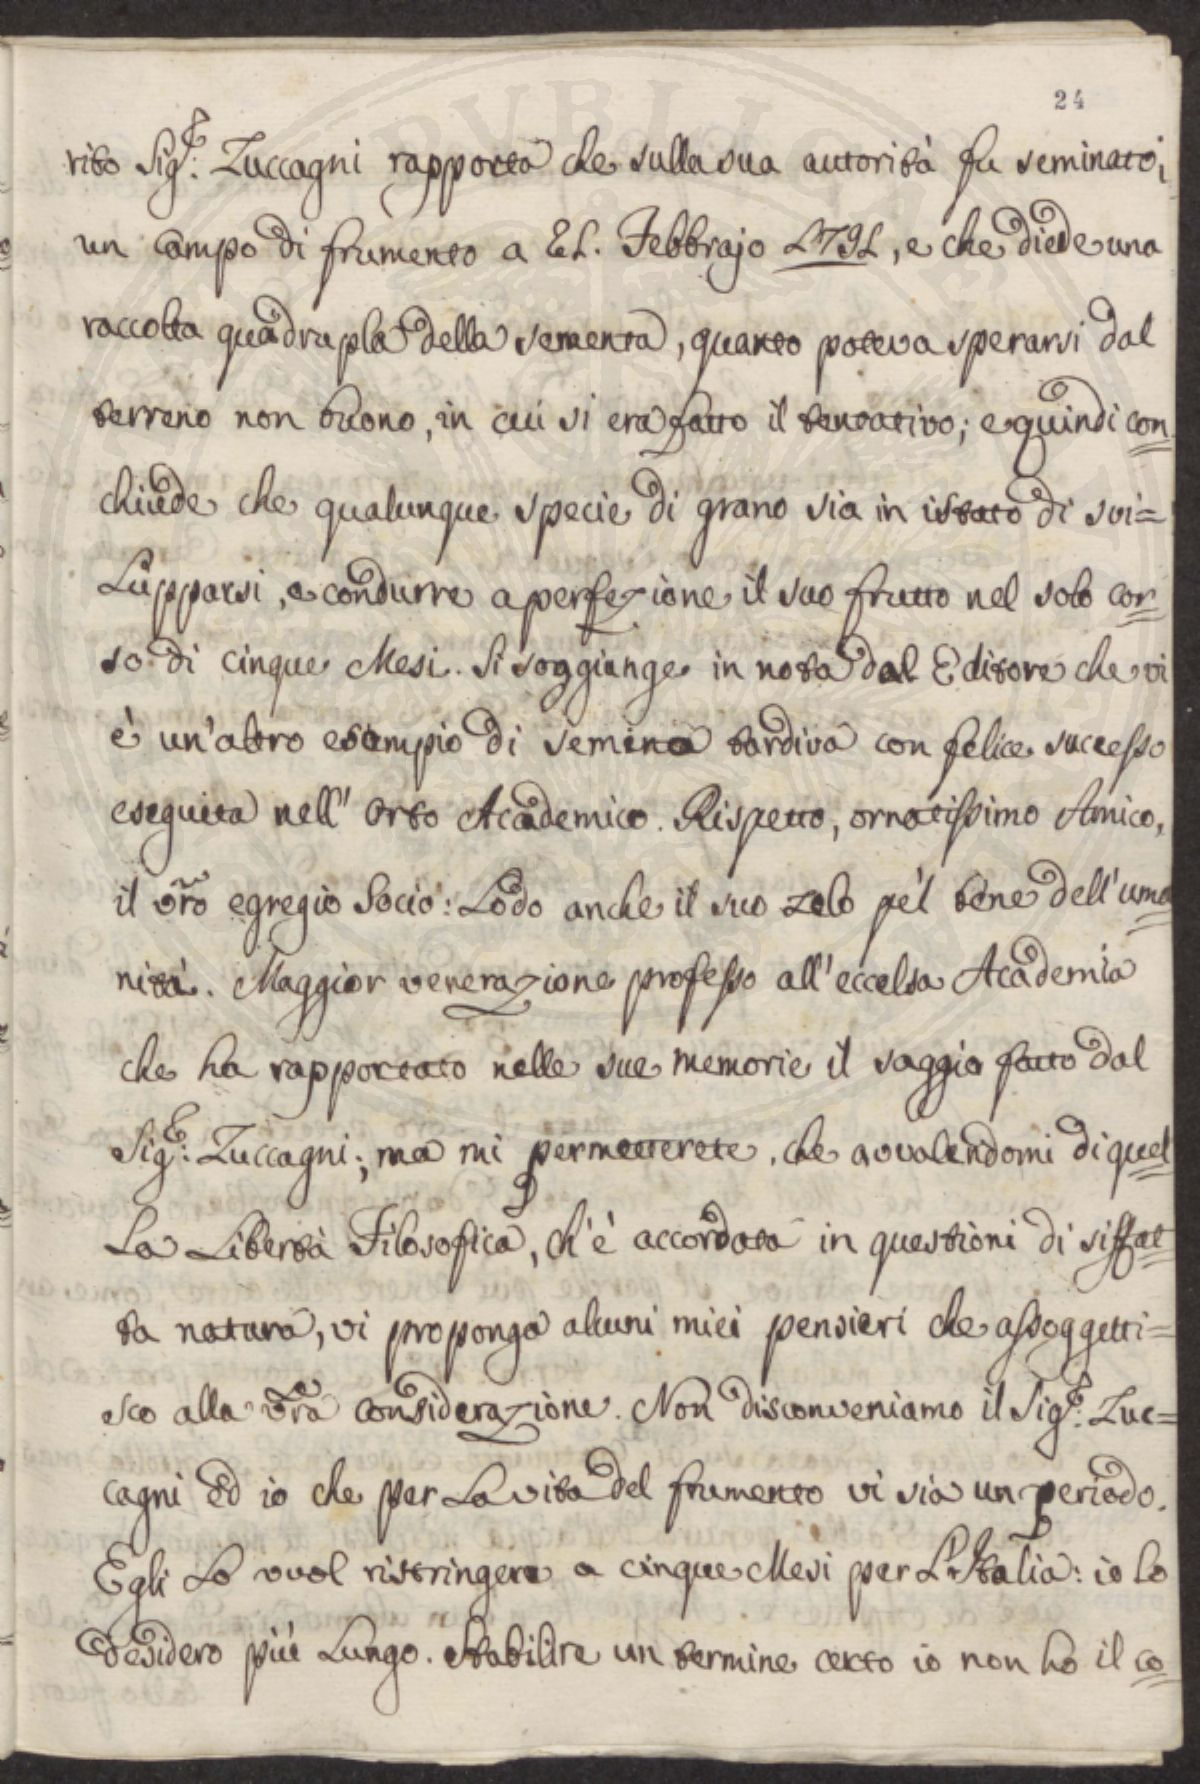 24
rito Sig.e: Zuccagni rapporta che sulla sua autorità fu seminato,
un campo di frumento a 21. Febbrajo 1791, e che diede una
raccolta quadrupla della sementa, quanto poteva sperarsi dal
terreno non buono, in cui si era fatto il tentativo; e quindi con=
chiude che qualunque specie di grano sia in istato di svi=
lupparsi, e condurre a perfezione il suo frutto nel solo cor=
so di cinque Mesi. Si soggiunge in nota dal Editore che vi
è un'altro esempio di semina tardiva con felice successo
eseguita nell' Orto Academico. Rispetto, ornatissimo Amico,
il vro egregio Socio: Lodo anche il suo zelo pe'l bene dell'uma=
nità. Maggior venerazione professo all'eccelsa Academia
che ha rapportato nelle sue memorie il saggio fatto dal
Sig.e: Zuccagni; ma mi permetterete, che avvalendomi di quel=
la Libertà Filosofica, ch'è accordata in questioni di siffat=
ta natura, vi proponga alcuni miei pensieri che assoggetti=
sco alla vra considerazione. Non disconveniamo il Sig.e: Zuc=
cagni ed io che per la vita del frumento vi sia un periodo.
Egli lo vuol ristringere a cinque Mesi per l'Italia: io lo
desidero più lungo. Stabilire un termine certo io non ho il co=